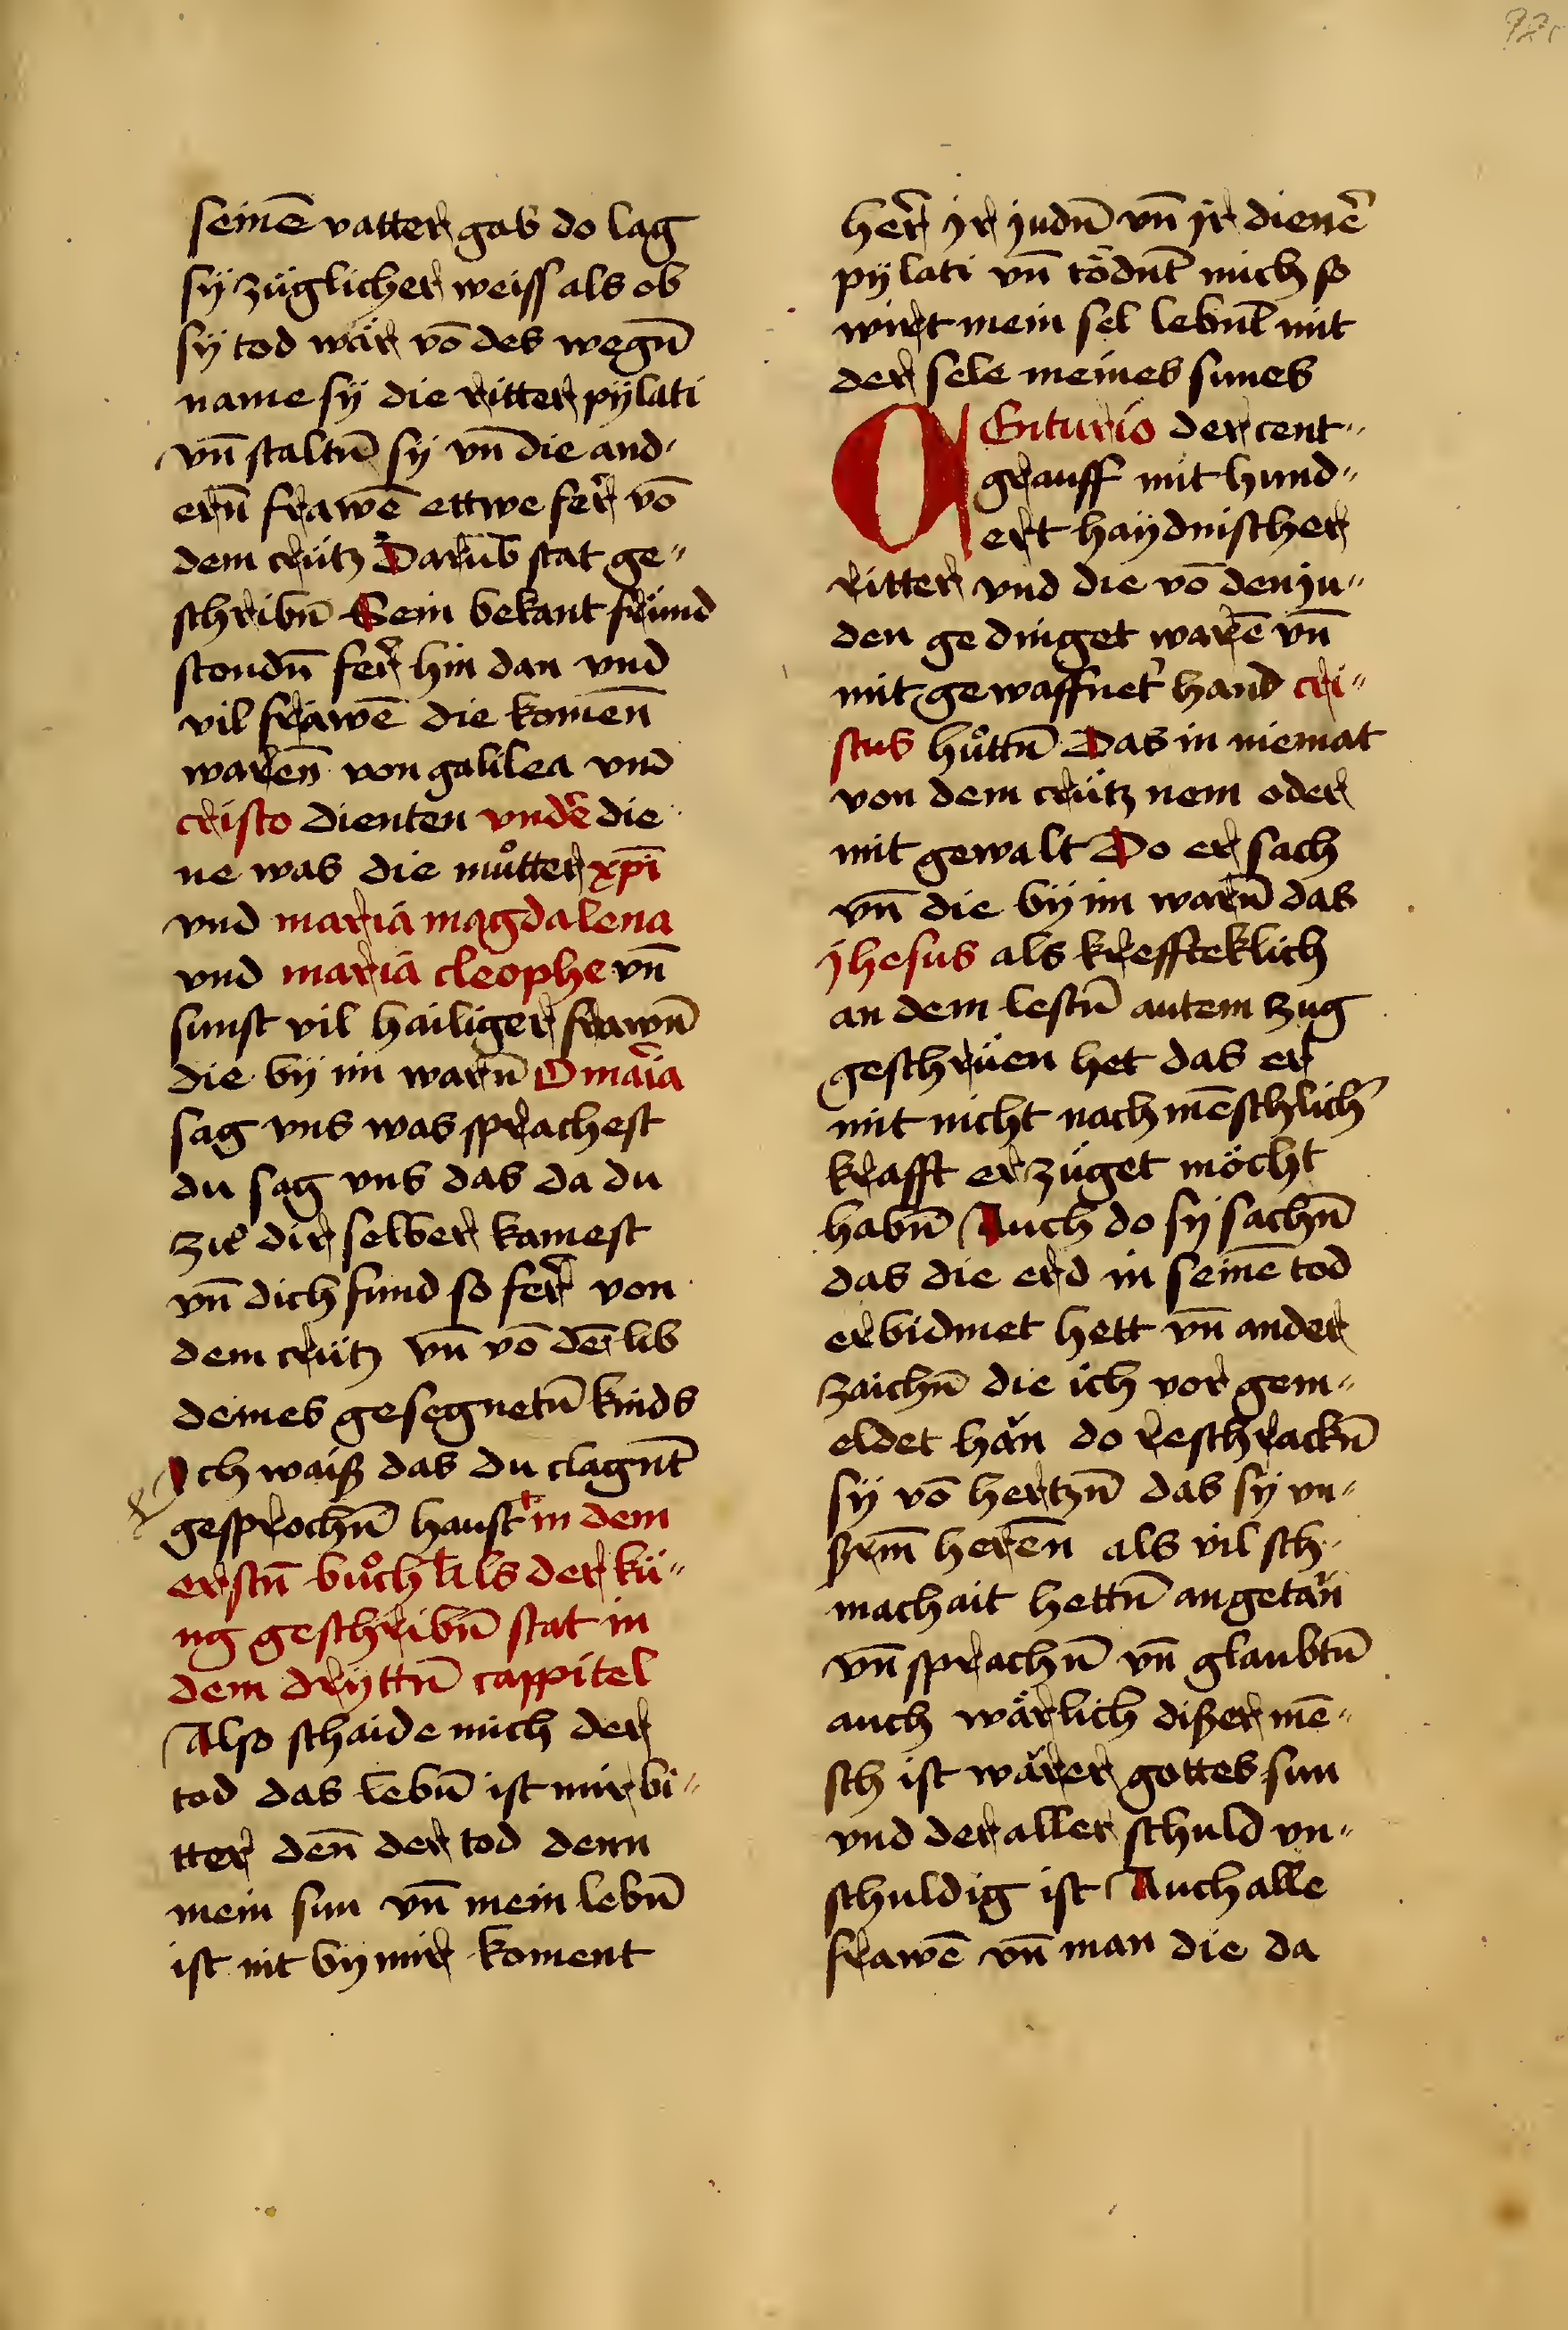 seinē vatter gab do lag
sÿ züglicher weiss als ob
sÿ tod wär vō des wegn̄
name sÿ die ritter pÿlati
vn̄ staltn̄ sÿ vn̄ die and
ern̄ frawē ettwe fer̄ vō
dem crütz Darūb stat ge"
schribn̄ Sein bekant fründ
stondn̄ fer̄ hin dan vnd
vil frawē die komen̄
waren̄ von galilea vnd
cristo dienten vndē die
ne was die muͦtter xpī
vnd maria magdalena
vnd maria cleophe vn̄
sunst vil hailiger frawn̄
die bÿ im warn̄ O māia
sag vns was sprachest
du sag vns das da du
zuͦ dir selber kamest
vn̄ dich fund so fer̄ von
dem crütz vn̄ vō dē lib
deines gesegnetn̄ kinds
Ich waiß das du clagnt̄
gesprochn̄ haust in dem
erstn̄ buͦch als der kü"
ng geschribn̄ stat in
dem dryttn̄ cappitel
Also schaide mich der
tod das lebn̄ ist mir bi"
tter den̄ der tod denn
mein sun vn̄ mein lebn̄
ist nit bÿ mir koment
her̄ jr judn̄ vn̄ jr dienē
pÿlati vn̄ tödnt̄ mich so
wirt mein sel lebnt̄ mit
der sele meines sunes
CEnturio der cent"
grauff mit hund"
ert haÿdnischer
ritter vnd die vō den ju"
den gedinget warē vn̄
mit gewaffnet' hand cri"
stus huͦttn̄ Das in niemat
von dem crütz nem oder
mit gewalt Do er sach
vn̄ die bÿ im warn̄ das
jhesus als kreffteklich
an dem lestn̄ autem zug
geschrüen het das er
mit nicht nach mēschlich'
krafft erzüget möcht
habn̄ Auch do sÿ sachn̄
das die erd in seinē tod
erbidmet hett vn̄ ander
zaichn̄ die ich vor gem"
eldet hän do reschrackn̄
sÿ vō hertzn̄ das sÿ vn"
ßrm̄ heren̄ als vil sch
machait hettn̄ angetän
vn̄ sprachn̄ vn̄ glaubtn̄
auch wärlich dißer mē"
sch ist wärer gottes sun
vnd der aller schuld vn"
schuldig ist Auch alle
frawē vn̄ man die da